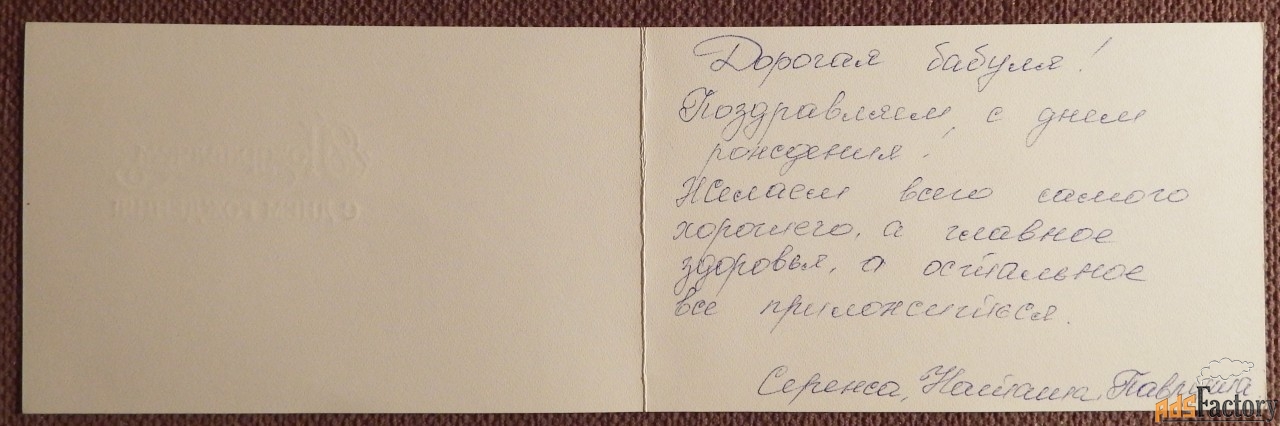 Поздравляем
с днем рождения
Дорогая бабуля!
Поздравляем с днем
рождения!
Желаем всего самого
хорошего, а главное
здоровья, а остальное
все приложиться.
Сережа, Наташа, Павлуша
adsFactory